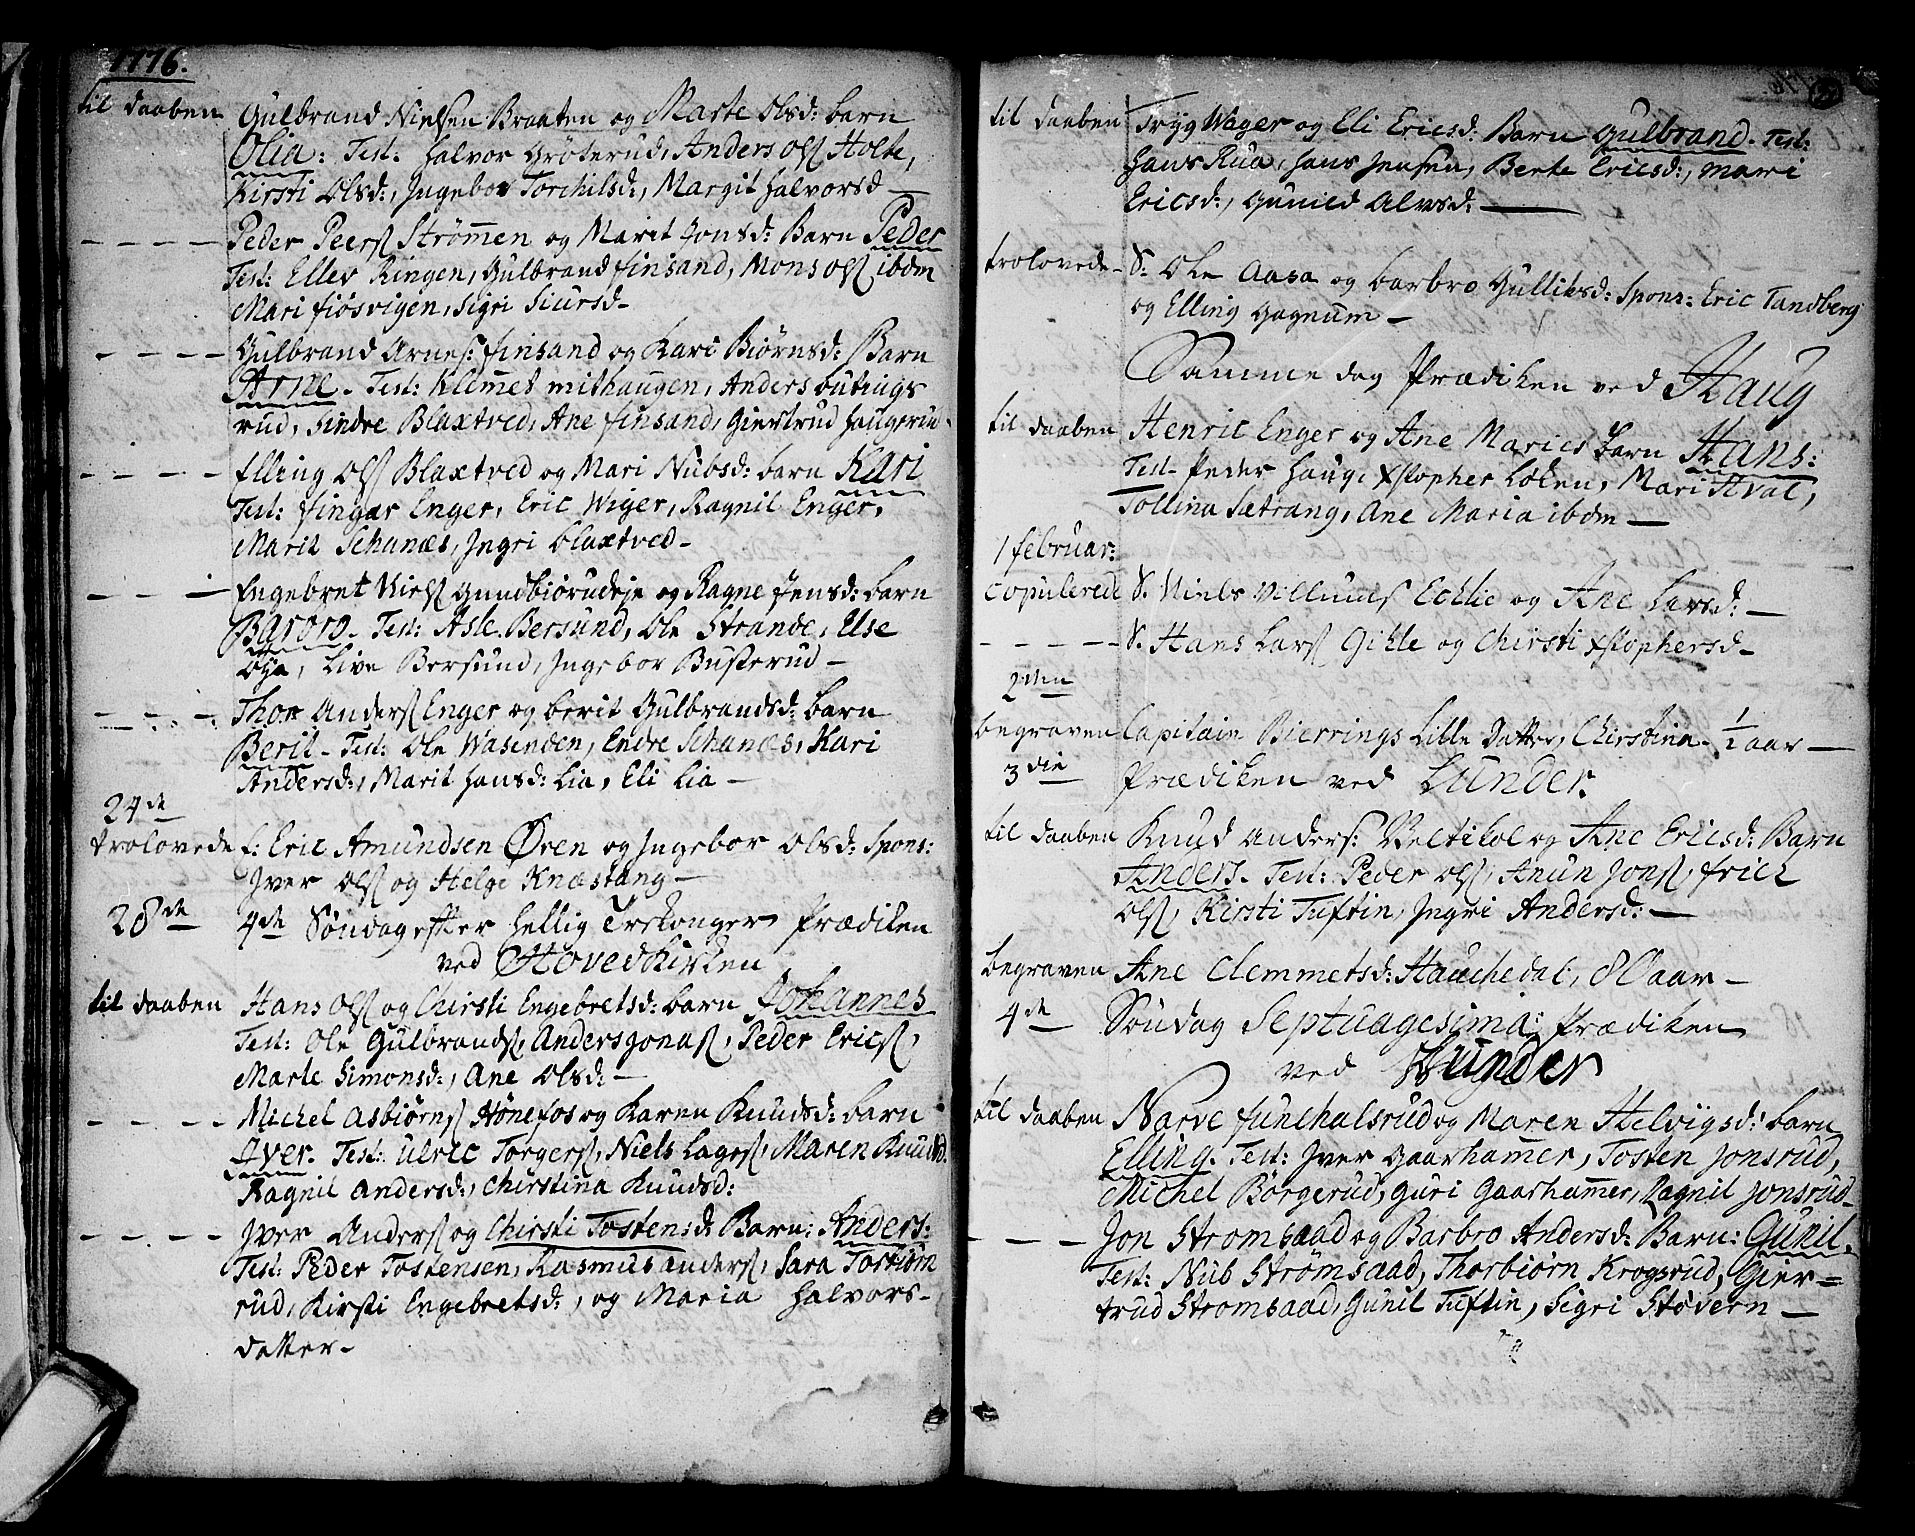 1776.
til daaben Gulbrand Nielsen Braaten og Marte Olsd: barn
Olia: Test: Halvor Gröterud, Anders Ols Holte,
Kirsti Olsd:, Ingebor Torchilsd:, Margit Halvorsd —
– – – – Peder Peers Strömen og Marit Jonsd: Barn Peder
Test: Ellev Ringen, Gulbrand finsand, Mons Ols ibdm
Mari fiösvigen, Sigri Siursd –
– – – – Gulbrand Arnes: finsand og Kari Biørnsd: Barn
Arne – Test: Klemet mithaugen, Anders butings
rud, Sindre Blaxtved, Ane finsand, Giertrud Haugerud
– – – – Elling Ols Blaxtved og Mari Nubsd: barn Kari
Test: fingar Enger, Eric Wiger, Ragnil Enger,
Marit Schanæs, Ingri blaxtved –
– – – Engebret Niels Gundbiørudeje og Ragne Jensd: barn
Barbro – Test: Asle Bersund, Ole Strande, Else
Øya, Live Bersund, Ingebor Busterud –
– – – – Thor Anders Enger og berit Gulbrandsd: barn
Berit – Test: Ole Wasenden, Endre Schanæs, Kari
Andersd:, Marit Hansd: Lia, Eli Lia –
24de
trolovede f: Eric Amundsen Øren og Ingebor Olsd: Spons:
Iver Ols og Helge Knæstang –
28de 4de Söndag efter Hellig Trekonger Prædiken
ved Hovedkirken
til daaben Hans Ols og Chirsti Engebretsd: barn Johannes
Test: Ole Gulbrands, Anders Jonas, Peder Erics,
Marte Simonsd:, Ane Olsd: –
– – – – Michel Asbiørns Hönefos og Karen Knudsd: barn
Iver. Test: Ulric Torgers, Niels Lages, Maren Knudsd.
Ragnil Andersd:, Christina Knudsd:
– – – – Iver Anders og Chirsti Tostensd: Barn: Anders:
Test: Peder Tostensen, Rasmus Anders, Sara Torbiørn
rud, Kirsti Engebretsd:, og Maria Halvors-
datter –
til daaben Tryg Wager og Eli Ericsd: Barn Gulbrand – Test:
Hans Rua, Hans Jensen, Berte Ericsd:, Mari
Ericsd:, Gunild Alvsd: —
trolovede – S: Ole Aasa og barbro Gulliksd: Spons: Eric Tandberg
og Elling Gagnum –
Samme dag Prædiken ved Haug
til daaben Henric Enger og Ane Maries barn Hans:
Test – Peder Haug, Xstopher Loken, Mari Hval,
Tollina Sætrang, Ane Maria ibdm –
1 februar:
Copulerede S. Niels Villums Ecklie og Ane Larsd: –
– – – – S. Hans Lars Gihle og Chirsti Xstophersd –
2den
begraven Capitain Bierrings Lille Datter, Christina – 1/2 aar —
3die Prædiken ved Lunder.
til daaben Knud Anders: Veltikol og Ane Ericsd: Barn
Anders. Test: Peder Ols, Anun Jons, frich
Ols, Kirsti Tuftin, Ingri Andersd: –
begraven Ane Clemmetsd: Hauchedal, 80 aar –
4de Söndag Septuagesima: Prædiken
ved Lunder
til daaben Narve funchalsrud og Maren Helvigsd: barn
Elling. Test: Iver Gaarhamer, Tosten Jonsrud,
Michel Borgerud, Guri Gaarhamer, Ragnil Jonsrud –
– – – Jon Stromsaad og Barbro Andersd: Barn: Gunil.
Test: Nub Strömsaad, Thorbiörn Krogsrud, Gier=
trud Stromsaad, Gunil Tuftin, Sigri Stövern –